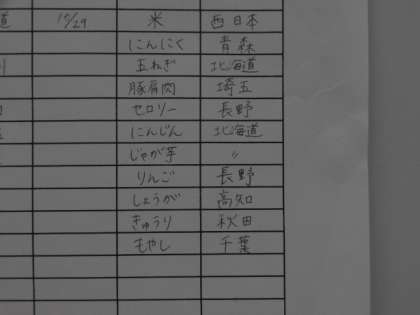 道 10/29 米 西日本
にんにく 青森
玉ねぎ 北海道
豚肩肉 埼玉
セロリー 長野
にんじん 北海道
じゃが芋 〃
りんご 長野
しょうが 高知
きゅうり 秋田
もやし 千葉